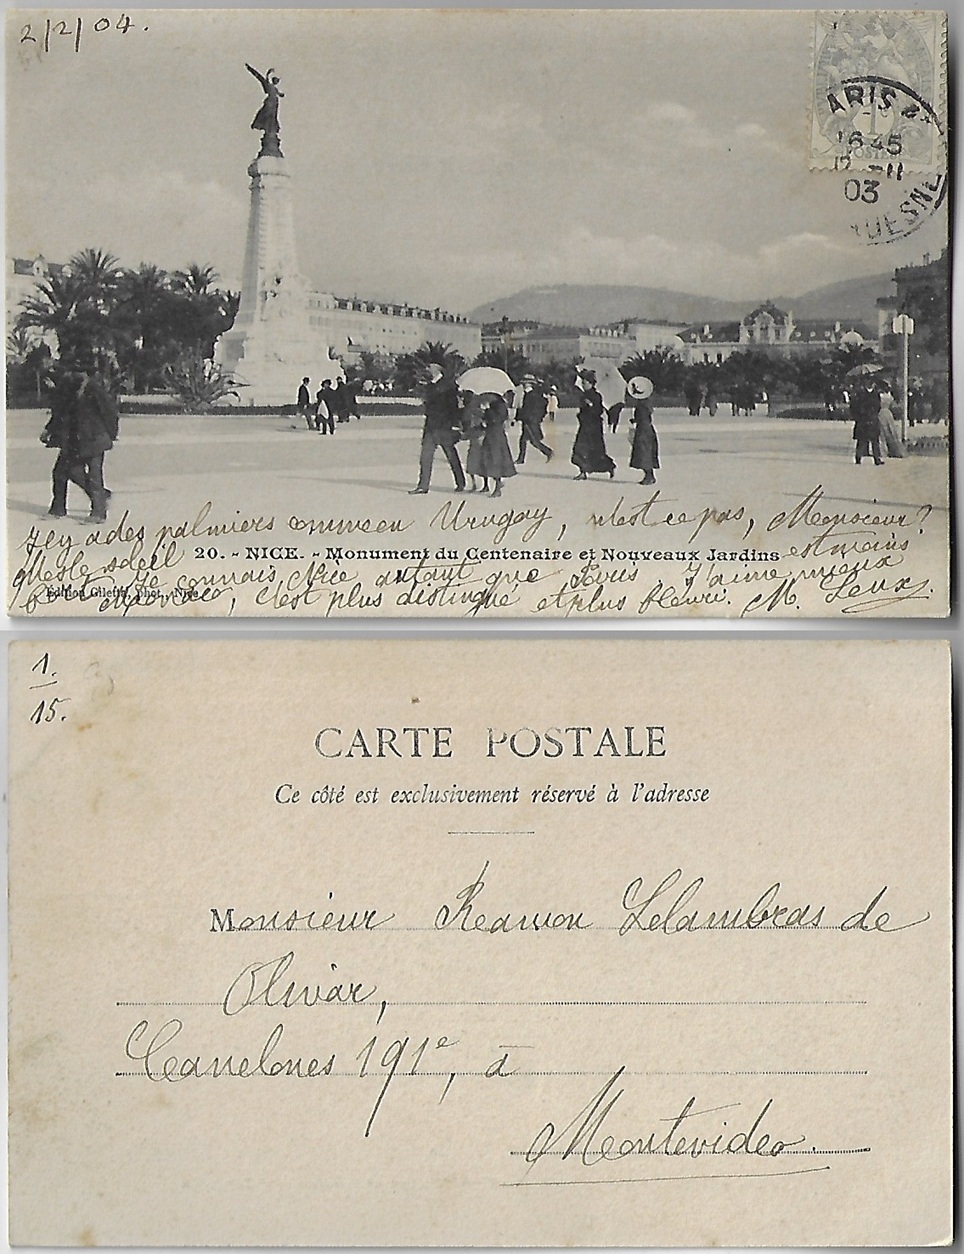 2/2/04.
ARIS
1645
12 -11
03
POSTES
UESNE
Il y a des palmiers comme en Urugay, n'est ce pas, Monsieur?
Mes le soleil est moins
20. - NICE. - Monument du Centenaire et Nouveaux Jardins
Je connais Nice autant que Paris J'aime mieux
Edition Giletta, phot., Nice
c'est plus distingué et plus fleuri. M.
1.
15.
CARTE POSTALE
Ce côté est exclusivement réservé à l'adresse
Monsieur Reamon Lelambras de
Olivar,
Canelones 191e, à
Montevideo.